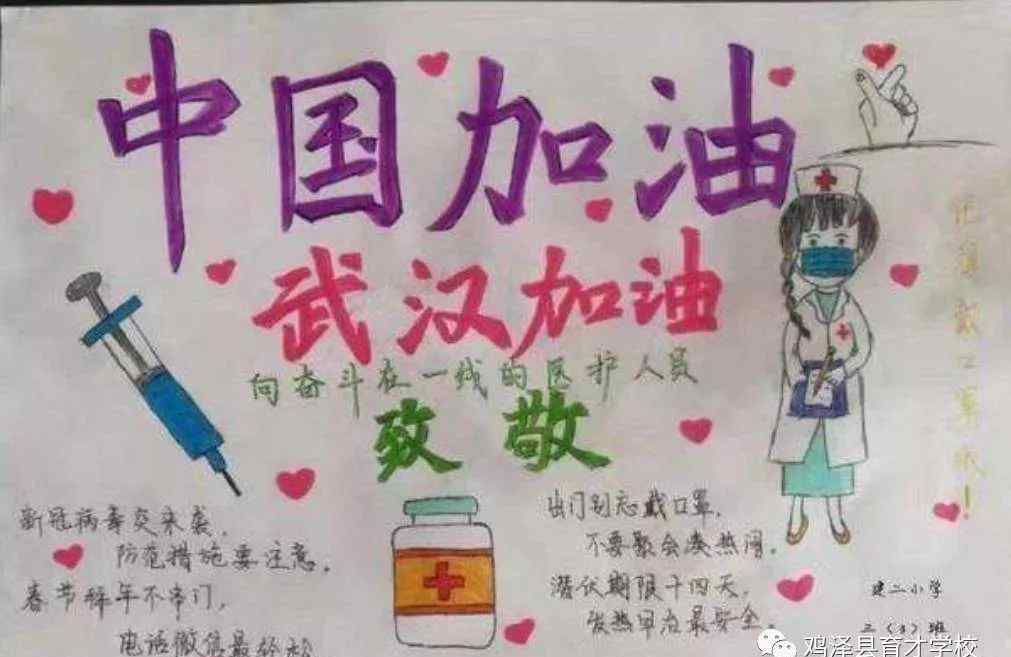 中国加油
武汉加油
向奋斗在一线的医护人员
致敬
新冠病毒突来袭，
防范措施要注意。
春节拜年不串门，
电话微信最轻松
出门别忘戴口罩，
不要聚会凑热闹。
潜伏期限十四天，
发热早治最安全。
记得戴口罩哦！
建二小学
三（3）班
鸡泽县育才学校